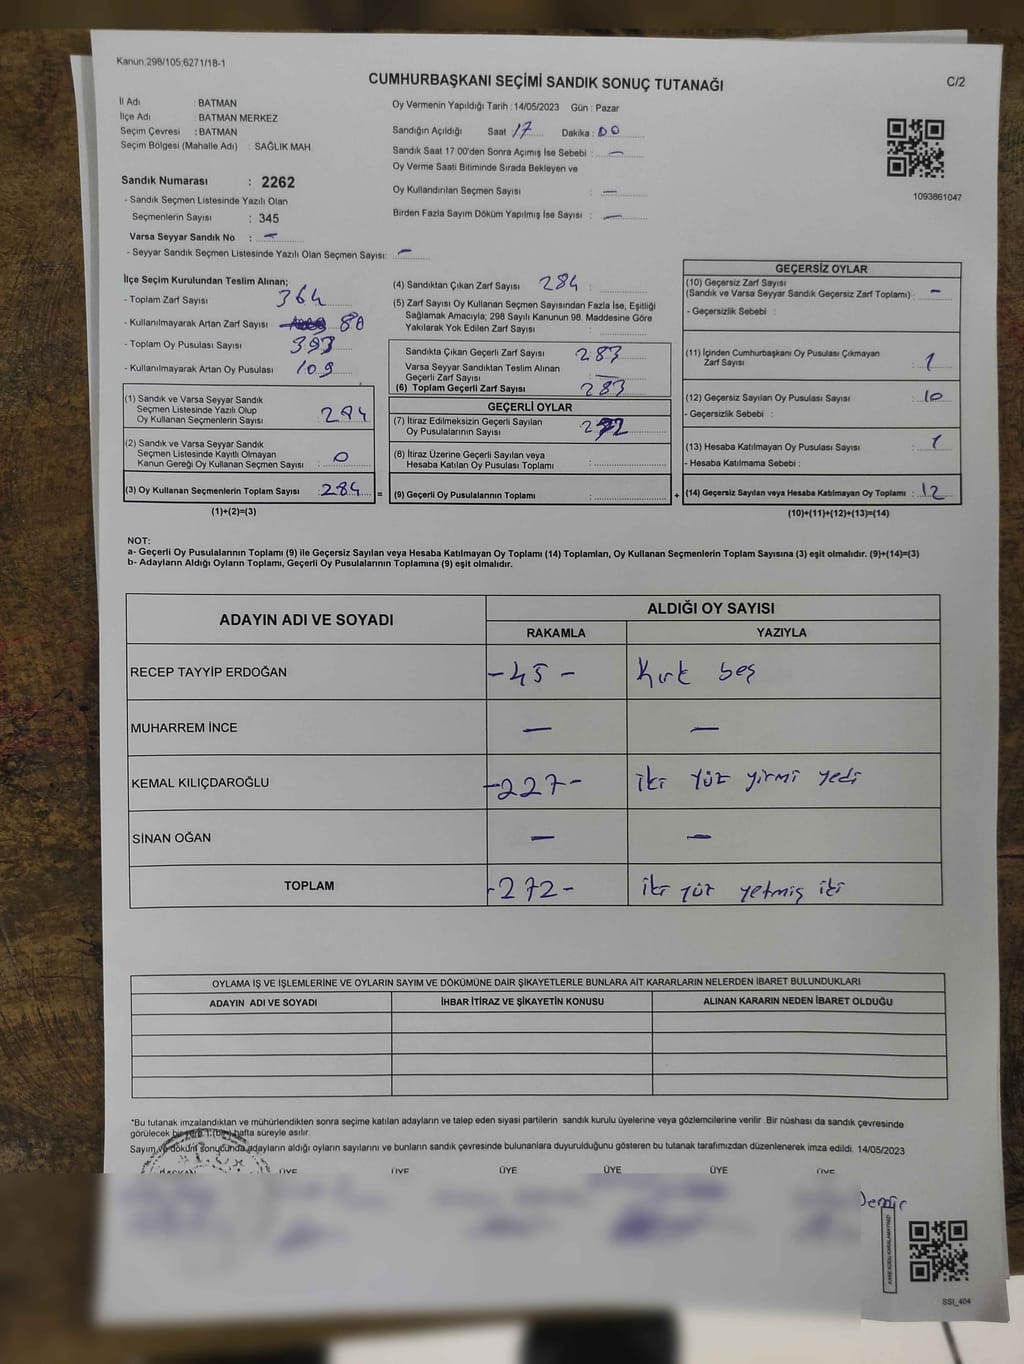 Kanun:298/105;6271/18-1
CUMHURBAŞKANI SEÇİMİ SANDIK SONUÇ TUTANAĞI
C/2
İl Adı : BATMAN
İlçe Adı : BATMAN MERKEZ
Seçim Çevresi : BATMAN
Seçim Bölgesi (Mahalle Adı) : SAĞLIK MAH
Sandık Numarası : 2262
- Sandık Seçmen Listesinde Yazılı Olan
Seçmenlerin Sayısı : 345
Varsa Seyyar Sandık No : —
- Seyyar Sandık Seçmen Listesinde Yazılı Olan Seçmen Sayısı: —
Oy Vermenin Yapıldığı Tarih : 14/05/2023 Gün : Pazar
Sandığın Açıldığı Saat 17 Dakika : 00
Sandık Saat 17:00'den Sonra Açımış İse Sebebi : —
Oy Verme Saati Bitiminde Sırada Bekleyen ve
Oy Kullandırılan Seçmen Sayısı : —
Birden Fazla Sayım Döküm Yapılmış İse Sayısı : —
1093861047
İlçe Seçim Kurulundan Teslim Alınan;
- Toplam Zarf Sayısı 364
- Kullanılmayarak Artan Zarf Sayısı 80
- Toplam Oy Pusulası Sayısı 393
- Kullanılmayarak Artan Oy Pusulası 109
(1) Sandık ve Varsa Seyyar Sandık
Seçmen Listesinde Yazılı Olup
Oy Kullanan Seçmenlerin Sayısı : 284
(2) Sandık ve Varsa Seyyar Sandık
Seçmen Listesinde Kayıtlı Olmayan
Kanun Gereği Oy Kullanan Seçmen Sayısı : 0
(3) Oy Kullanan Seçmenlerin Toplam Sayısı : 284 =
(1)+(2)=(3)
(4) Sandıktan Çıkan Zarf Sayısı : 284
(5) Zarf Sayısı Oy Kullanan Seçmen Sayısından Fazla İse, Eşitliği
Sağlamak Amacıyla; 298 Sayılı Kanunun 98. Maddesine Göre
Yakılarak Yok Edilen Zarf Sayısı :
Sandıkta Çıkan Geçerli Zarf Sayısı : 283
Varsa Seyyar Sandıktan Teslim Alınan
Geçerli Zarf Sayısı : —
(6) Toplam Geçerli Zarf Sayısı : 283
GEÇERLİ OYLAR
(7) İtiraz Edilmeksizin Geçerli Sayılan
Oy Pusulalarının Sayısı : 272
(8) İtiraz Üzerine Geçerli Sayılan veya
Hesaba Katılan Oy Pusulası Toplamı :
(9) Geçerli Oy Pusulalarının Toplamı : +
GEÇERSİZ OYLAR
(10) Geçersiz Zarf Sayısı
(Sandık ve Varsa Seyyar Sandık Geçersiz Zarf Toplamı) : —
- Geçersizlik Sebebi :
(11) İçinden Cumhurbaşkanı Oy Pusulası Çıkmayan
Zarf Sayısı : 1
(12) Geçersiz Sayılan Oy Pusulası Sayısı : 10
- Geçersizlik Sebebi :
(13) Hesaba Katılmayan Oy Pusulası Sayısı : 1
- Hesaba Katılmama Sebebi :
(14) Geçersiz Sayılan veya Hesaba Katılmayan Oy Toplamı : 12
(10)+(11)+(12)+(13)=(14)
NOT:
a- Geçerli Oy Pusulalarının Toplamı (9) ile Geçersiz Sayılan veya Hesaba Katılmayan Oy Toplamı (14) Toplamları, Oy Kullanan Seçmenlerin Toplam Sayısına (3) eşit olmalıdır. (9)+(14)=(3)
b- Adayların Aldığı Oyların Toplamı, Geçerli Oy Pusulalarının Toplamına (9) eşit olmalıdır.
ADAYIN ADI VE SOYADI
ALDIĞI OY SAYISI
RAKAMLA YAZIYLA
RECEP TAYYİP ERDOĞAN -45- kırk beş
MUHARREM İNCE — —
KEMAL KILIÇDAROĞLU -227- iki yüz yirmi yedi
SİNAN OĞAN — —
TOPLAM -272- iki yüz yetmiş iki
OYLAMA İŞ VE İŞLEMLERİNE VE OYLARIN SAYIM VE DÖKÜMÜNE DAİR ŞİKAYETLERLE BUNLARA AİT KARARLARIN NELERDEN İBARET BULUNDUKLARI
ADAYIN ADI VE SOYADI İHBAR İTİRAZ VE ŞİKAYETİN KONUSU ALINAN KARARIN NEDEN İBARET OLDUĞU
*Bu tutanak imzalandıktan ve mühürlendikten sonra seçime katılan adayların ve talep eden siyasi partilerin sandık kurulu üyelerine veya gözlemcilerine verilir. Bir nüshası da sandık çevresinde
görülecek bir yere 1 (bir) hafta süreyle asılır.
Sayım ve döküm sonucunda adayların aldığı oyların sayılarını ve bunların sandık çevresinde bulunanlara duyurulduğunu gösteren bu tutanak tarafımızdan düzenlenerek imza edildi. 14/05/2023
BAŞKAN ÜYE ÜYE ÜYE ÜYE ÜYE ÜYE
SSI_404